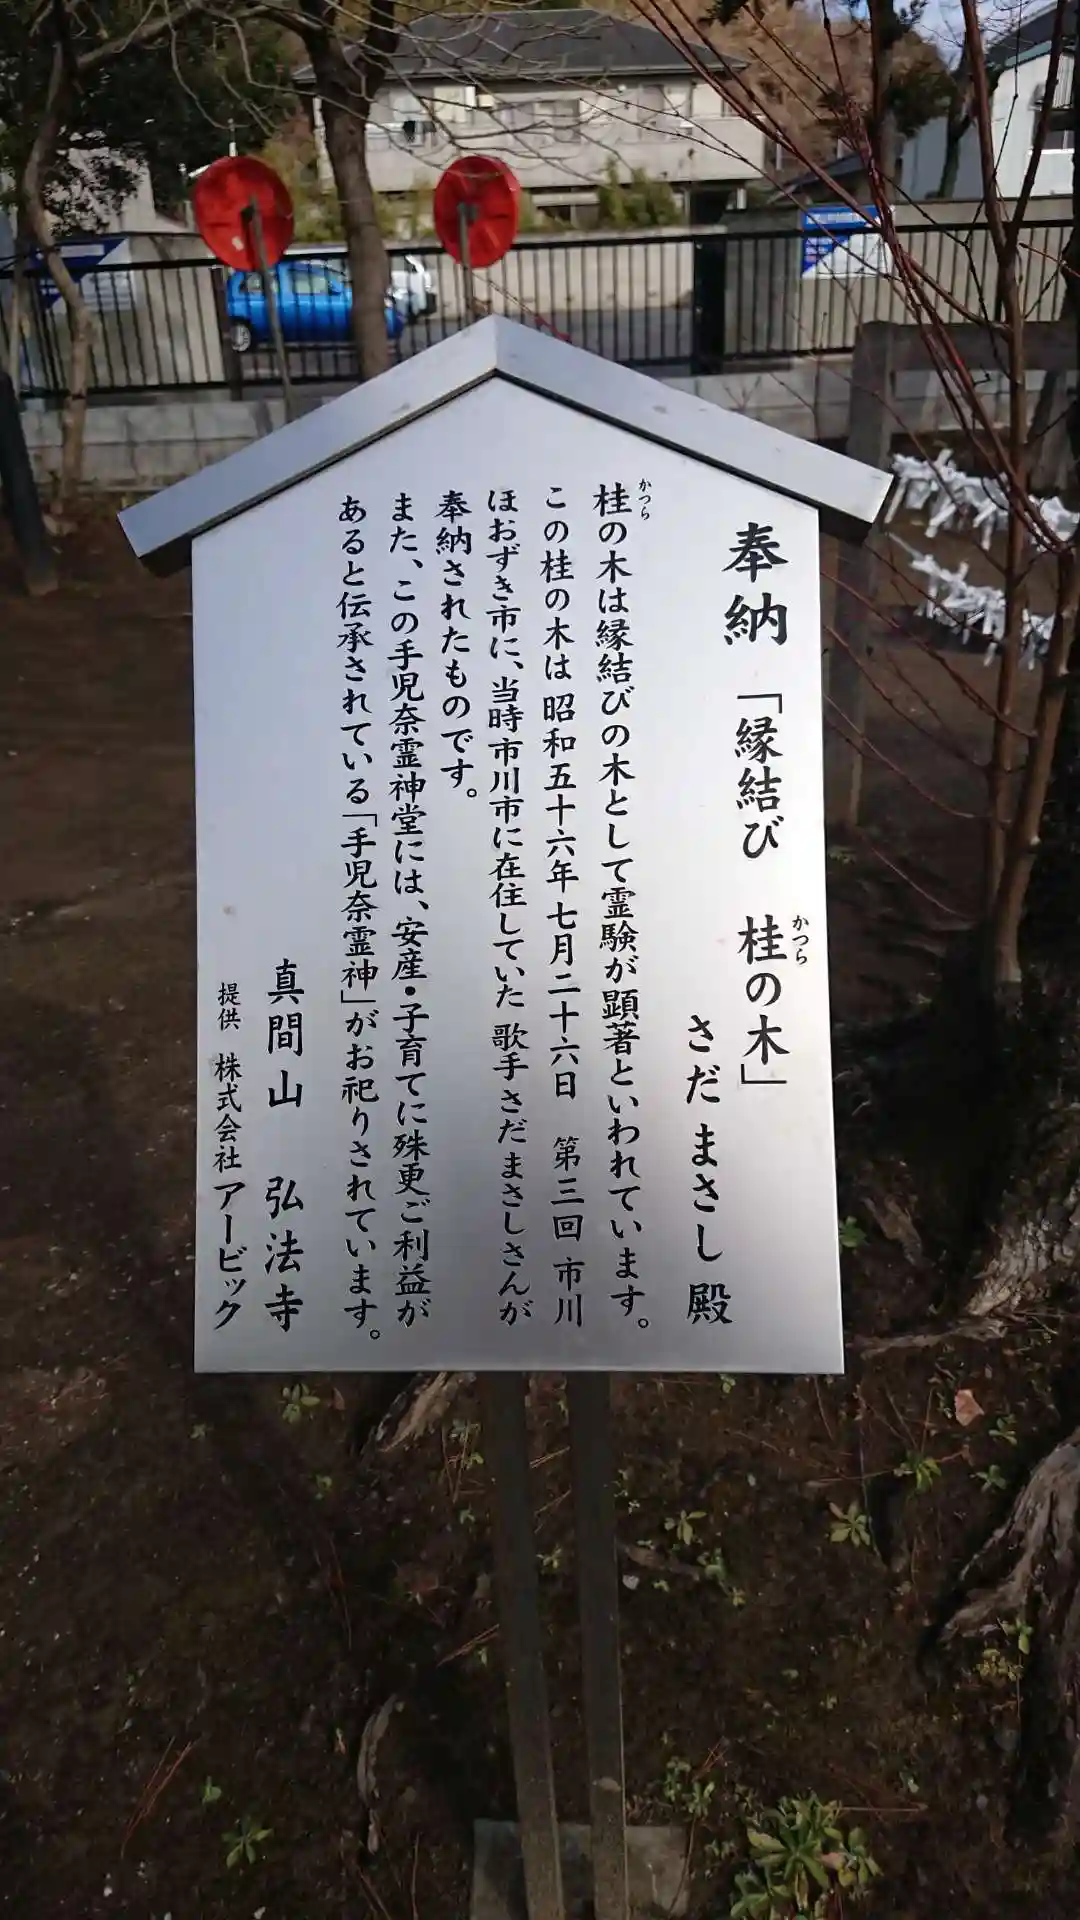 奉納 「縁結び 桂の木」
かつら
さだまさし殿
桂の木は縁結びの木として霊験が顕著といわれています。
かつら
この桂の木は昭和五十六年七月二十六日 第三回市川
ほおずき市に、当時市川市に在住していた歌手さだまさしさんが
奉納されたものです。
また、この手児奈霊神堂には、安産・子育てに殊更ご利益が
あると伝承されている「手児奈霊神」がお祀りされています。
真間山 弘法寺
提供 株式会社アービック